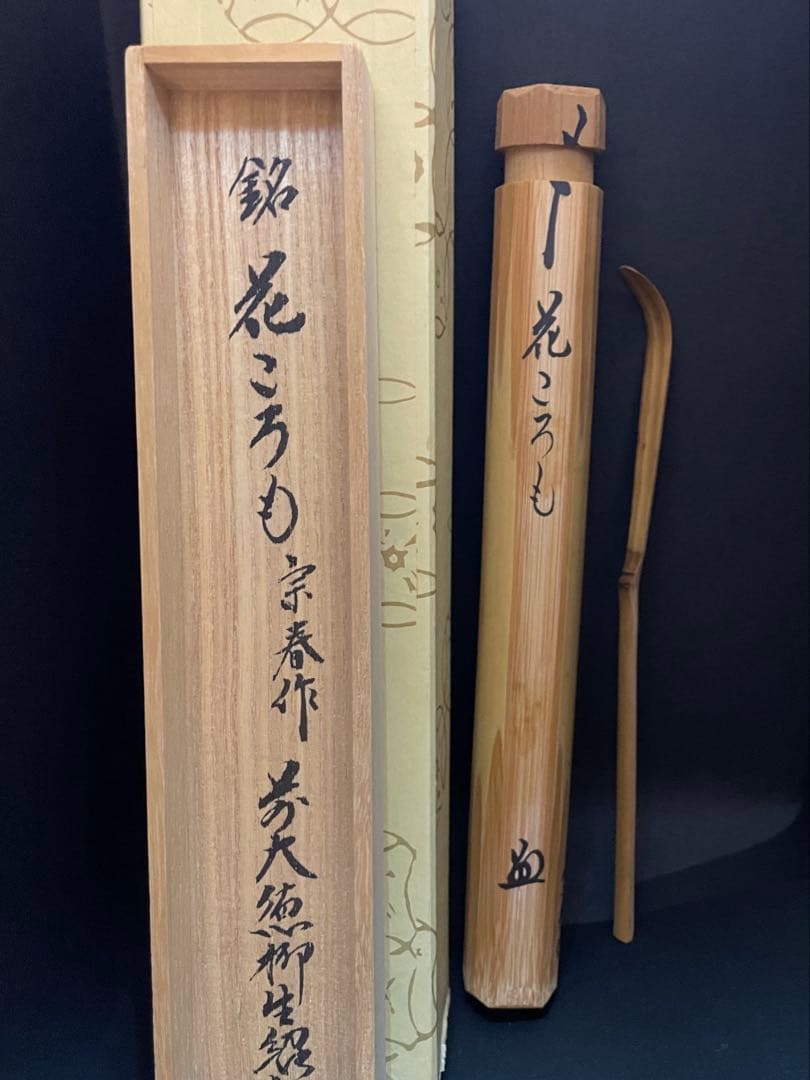 銘
花ころも
宗春作
前大徳柳生紹
花ころも